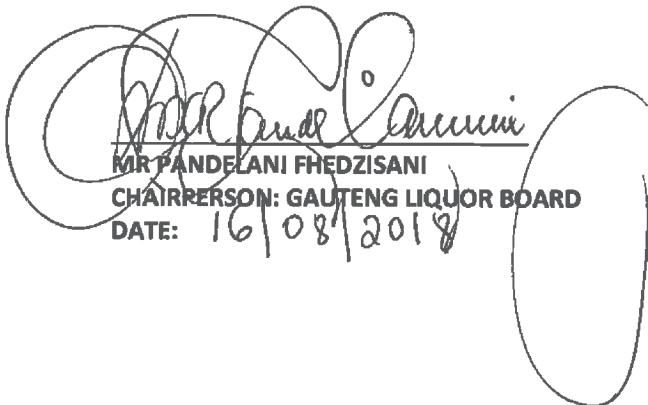 MR PANDELANI FHEDZISANI
CHAIRPERSON: GAUTENG LIQUOR BOARD
DATE: 16/08/2018